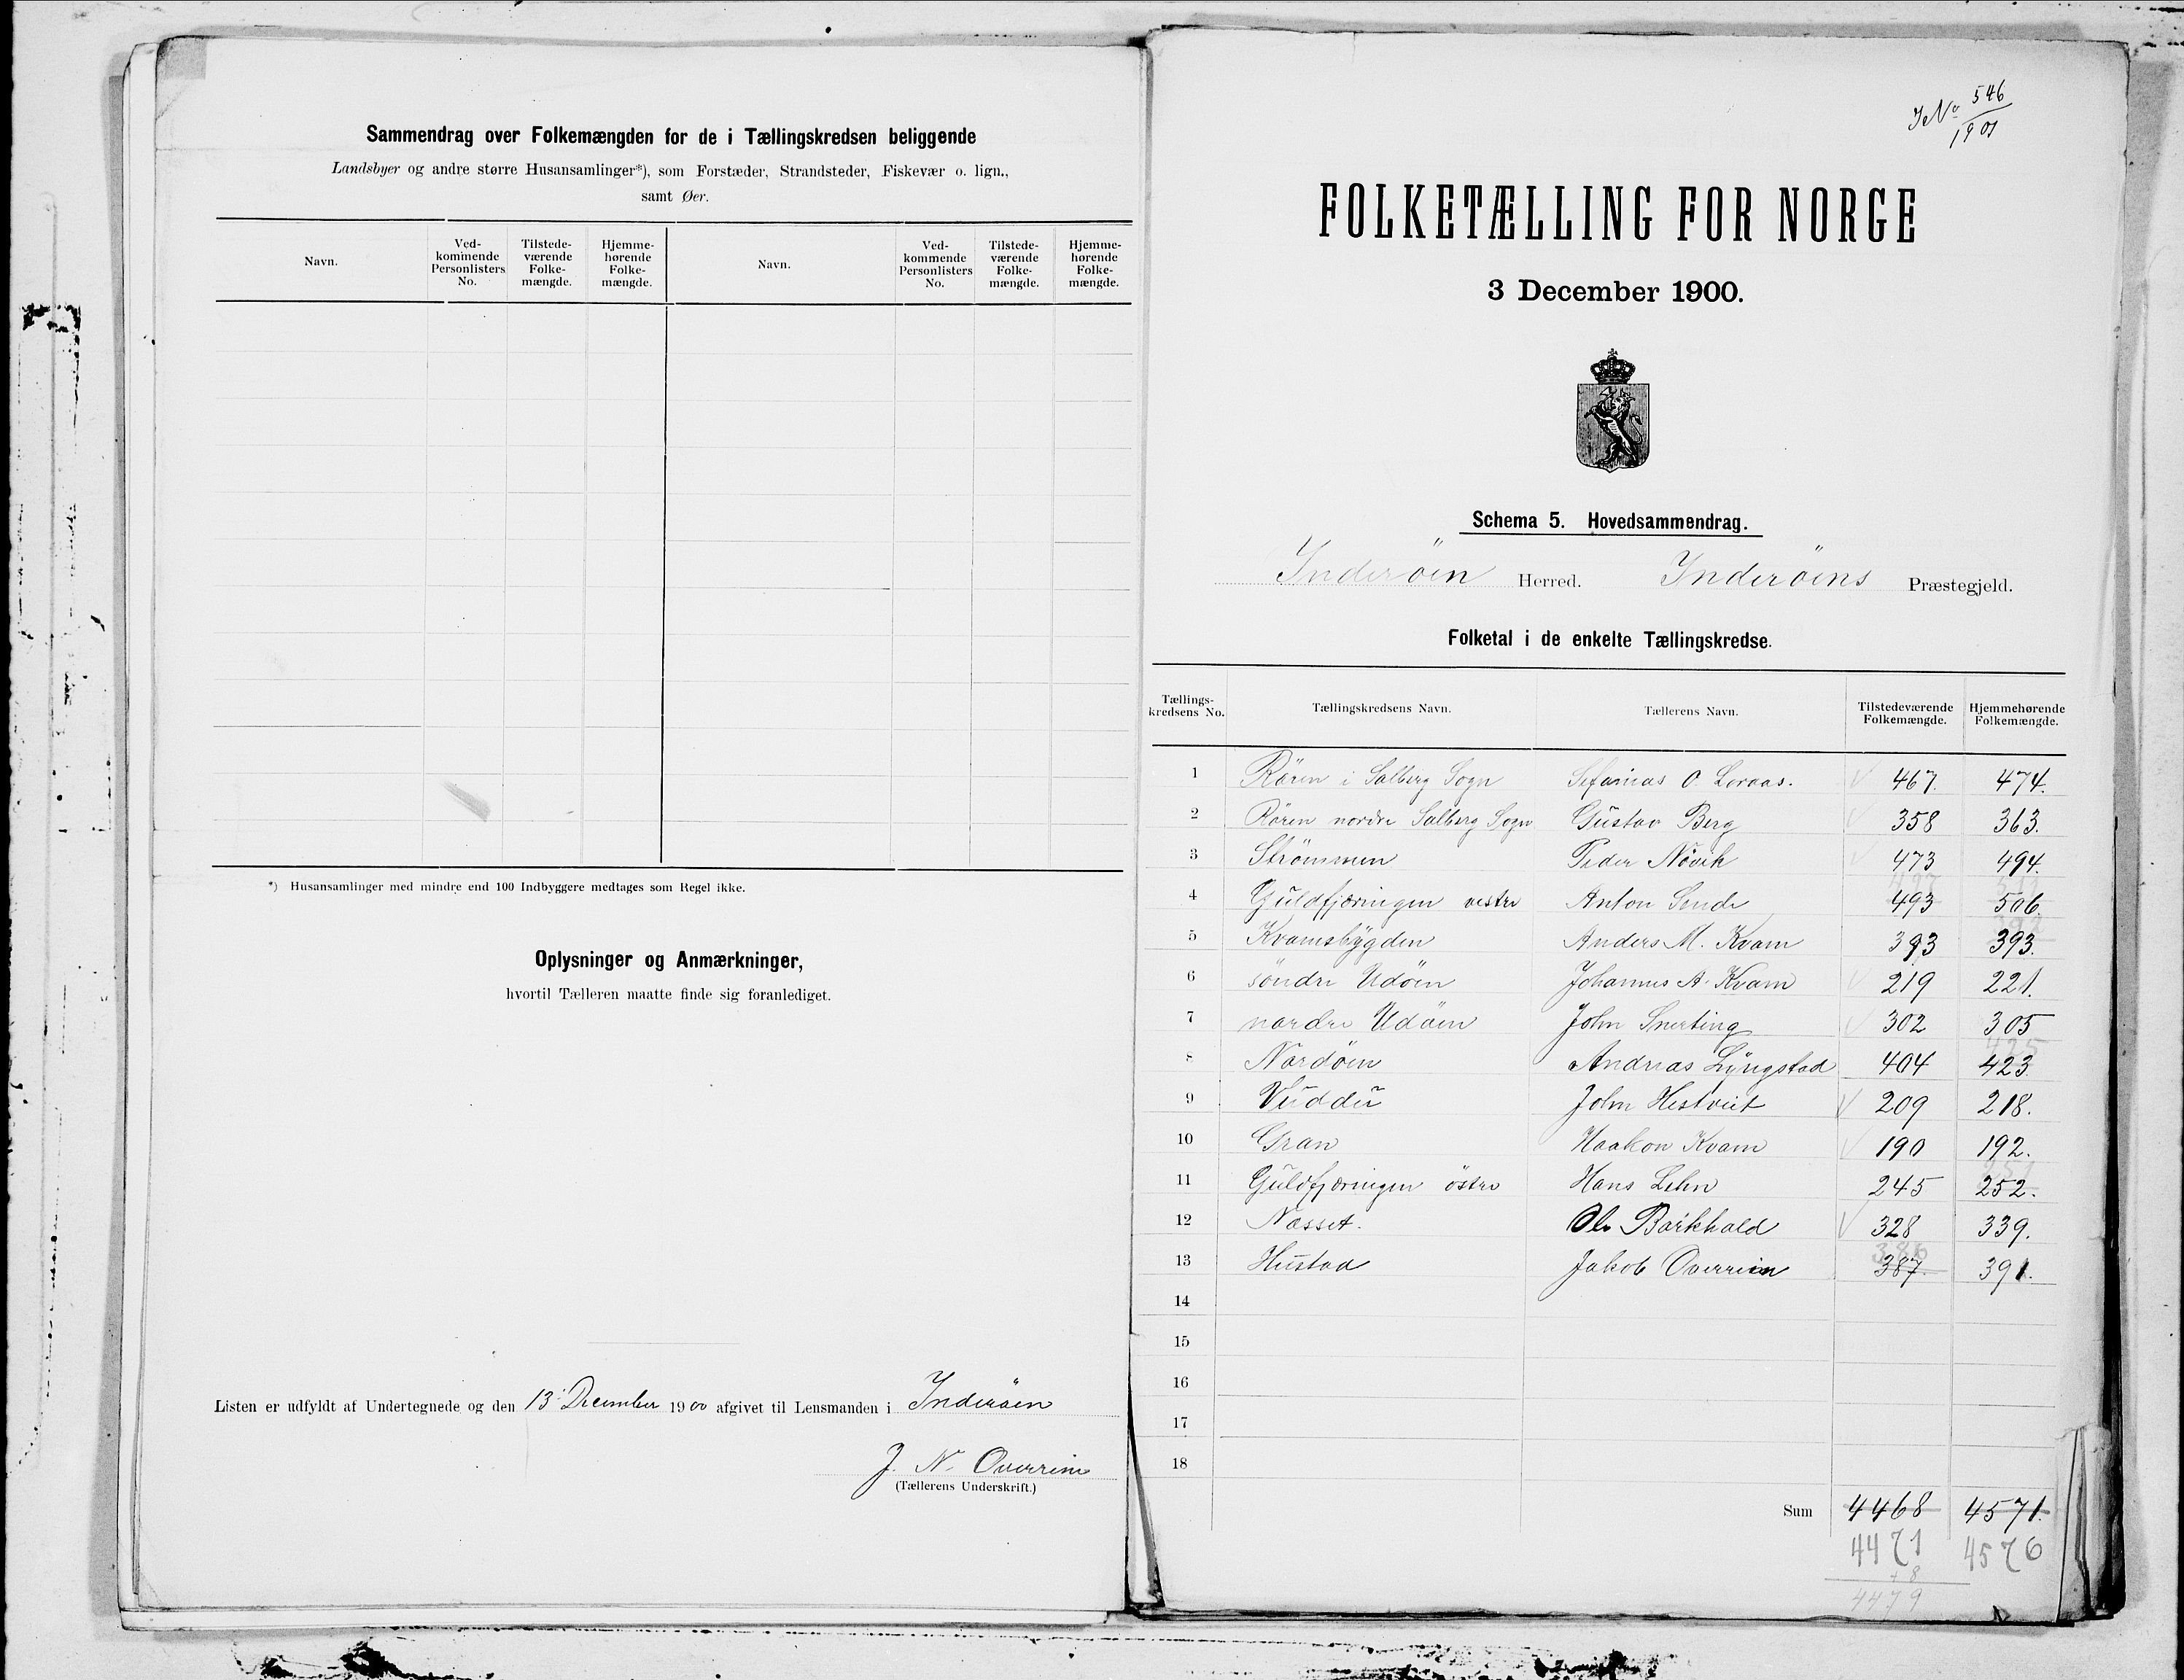 Sammendrag over Folkemængden for de i Tællingskredsen beliggende
Landsbyer og andre større Husansamlinger*), som Forstæder, Strandsteder, Fiskevær o. lign.,
samt Øer.
Navn. Ved-kommende Personlisters No. Tilstede-værende Folke-mængde. Hjemme-hørende Folke-mængde. Navn. Ved-kommende Personlisters No. Tilstede-værende Folke-mængde. Hjemme-hørende Folke-mængde.
*) Husansamlinger med mindre end 100 Indbyggere medtages som Regel ikke.
Oplysninger og Anmærkninger,
hvortil Tælleren maatte finde sig foranlediget.
Listen er udfyldt af Undertegnede og den 13' December 1900 afgivet til Lensmanden i Inderöen
J. N. Overrein
(Tællerens Underskrift.)
J No 546
1901
FOLKETÆLLING FOR NORGE
3 December 1900.
Schema 5. Hovedsammendrag.
Inderöen Herred. Inderöens Præstegjeld.
Folketal i de enkelte Tællingskredse.
Tællings-kredsens No. Tællingskredsens Navn. Tællerens Navn. Tilstedeværende Folkemængde. Hjemmehørende Folkemængde.
1 Rören i Salberg Sogn Sefanias O. Loraas. 467. 474.
2 Rören nordre Salberg Sogn Gustav Berg 358 363.
3 Strömmen Peder Növik 473 494.
4 Guldfjæringen vestre Anton Sende 493 506.
5 Kvamsbygden Anders M. Kvam 393 393.
6 söndre Udöen Johannes A. Kvam 219 221.
7 nordre Udöen John Snerting 302 305
425
8 Nordöen Andreas Lyngstad 404 423.
9 Vuddu John Hestveit 209 218.
10 Gran Haakon Kvam 190 192.
251
11 Guldfjæringen östre Hans Lehn 245 252.
12 Næsset. Ole Barkhald 328 339.
386
13 Hustad Jakob Overrein 387. 391.
14
15
16
17
18
Sum 4468 4571.
4471 4576
+8
4479